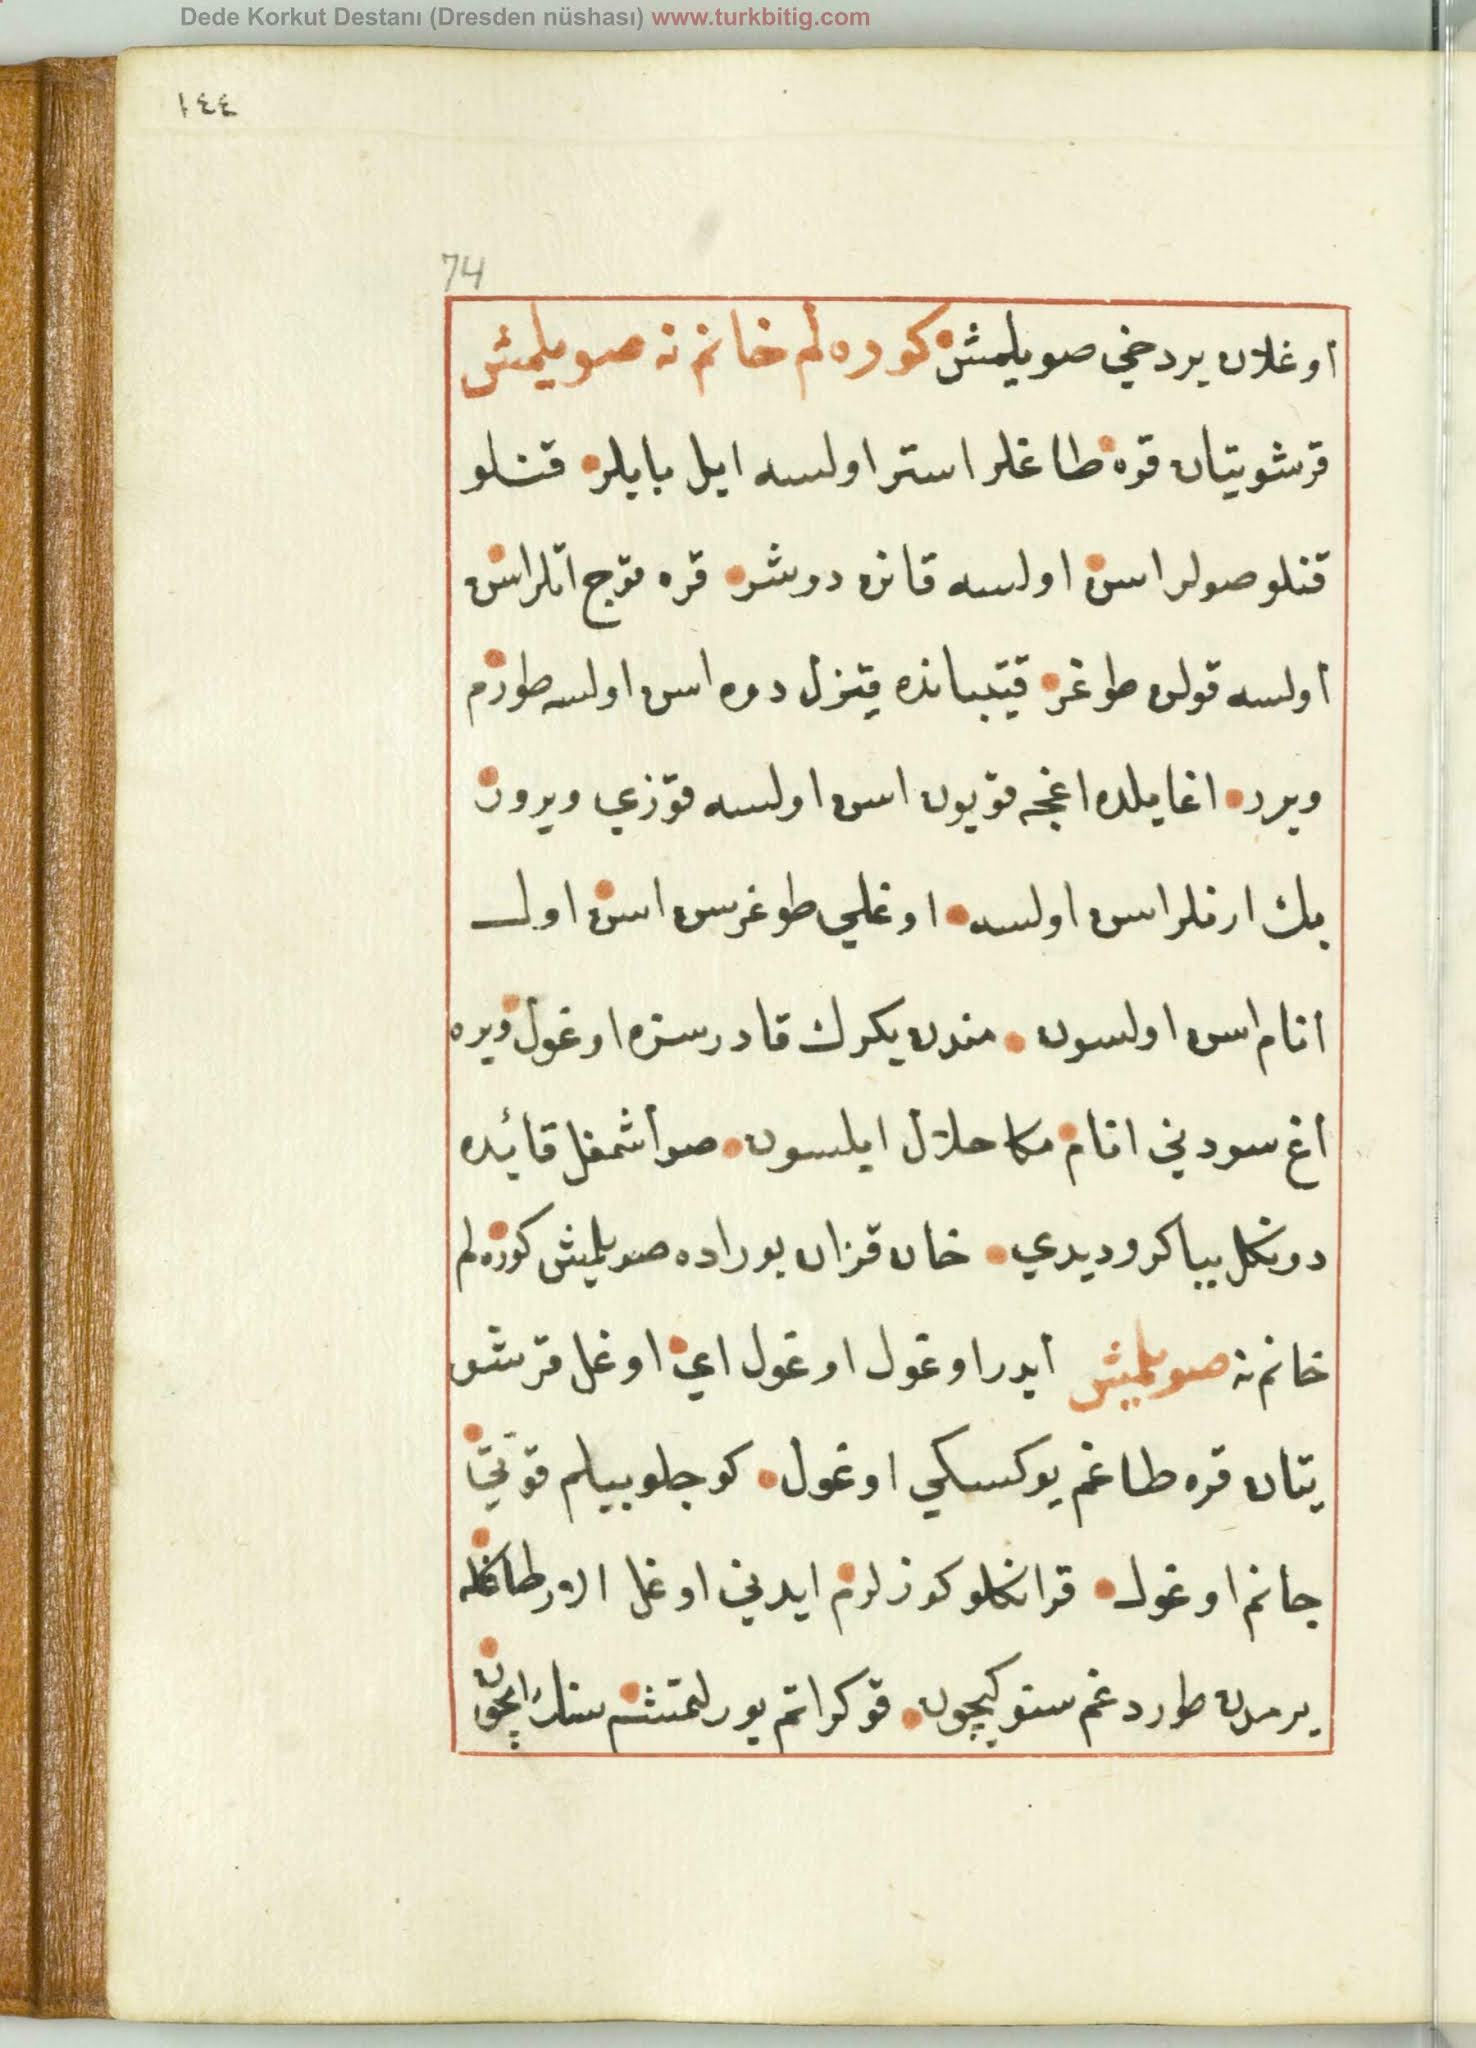 Dede Korkut Destanı (Dresden nüshası) www.turkbitig.com
١٤٤
74
اوغلان بردخي صويلمش كوره لم خانم نه صويلمش
قرشويتان قره طاغلر استر اولسه ايل بايلر قنلو
قنلو صولر اسن اولسه قانن دوشر قره قوج اتلر اسن
اولسه قولن طوغر قيتبانده قيزل دوه اسن اولسه طورم
ويرر اغايلده اغجه قويون اسن اولسه قوزي ويرون
بك ارنلر اسن اولسه اوغلي طوغرسن اسن اول
انام اسن اولسون مندن يكرك قادر سزه اوغول ويره
اغ سودني انام مكا حلال ايلسون صواشمغل قايده
دونكل بيا كرو ديدي خان قزان بوراده صويلمش كوره لم
خانم نه صويلمش ايدر اوغول اوغول اي اوغل قرشو
يتان قره طاغم يوكسكي اوغول كوجلو بيلم قوتي
جانم اوغول قرانكلو كوزلرم ايدني اوغل الار طاكله
يرمدن طوردغم سنوكيچون قوكر اتم يورلمتشم سنك ايچون